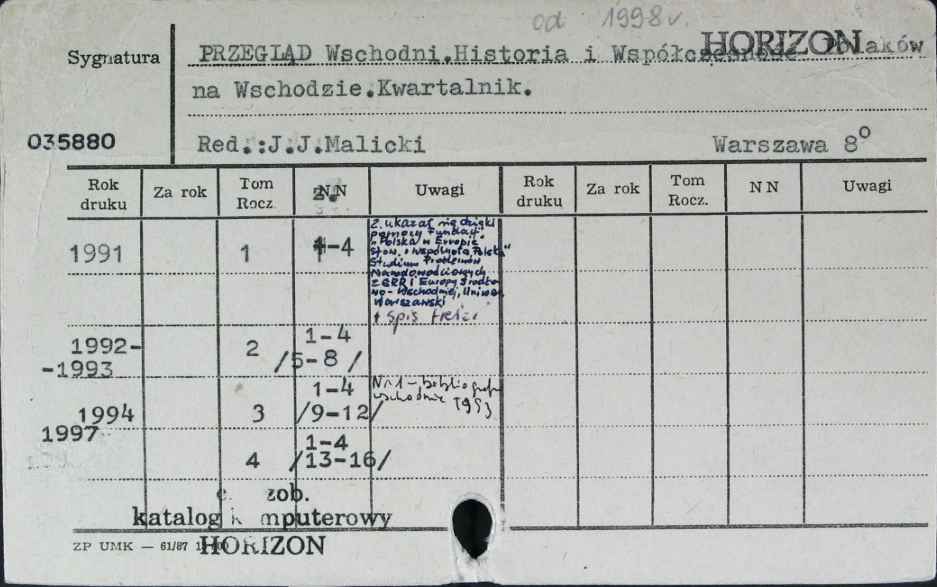 od 1998 r.
HORIZON
Sygnatura PRZEGLĄD Wschodni.Historia i Współczesność Polaków
na Wschodzie.Kwartalnik.
035880 Red.:J.J.Malicki Warszawa 8°
Rok druku Za rok Tom Rocz. NN Uwagi Rok druku Za rok Tom Rocz. NN Uwagi
1991 1 1-4
Z. ukazał się dzięki
pomocy Fundacji
"Polska w Europie"
Stow. "Wspólnota Polska"
Studium Problemów
Narodowościowych
ZSRR i Europy Środko
wo-Wschodniej, Uniwer.
Warszawski
+ spis treści
1992- 2 1-4
-1993 /5-8 /
1994 3 1-4
/9-12/
Nr 1 - bibliografia
wschodnia 1993
1997 4 1-4
/13-16/
c. zob.
katalog k mputerowy
HORIZON
ZP UMK — 61/87